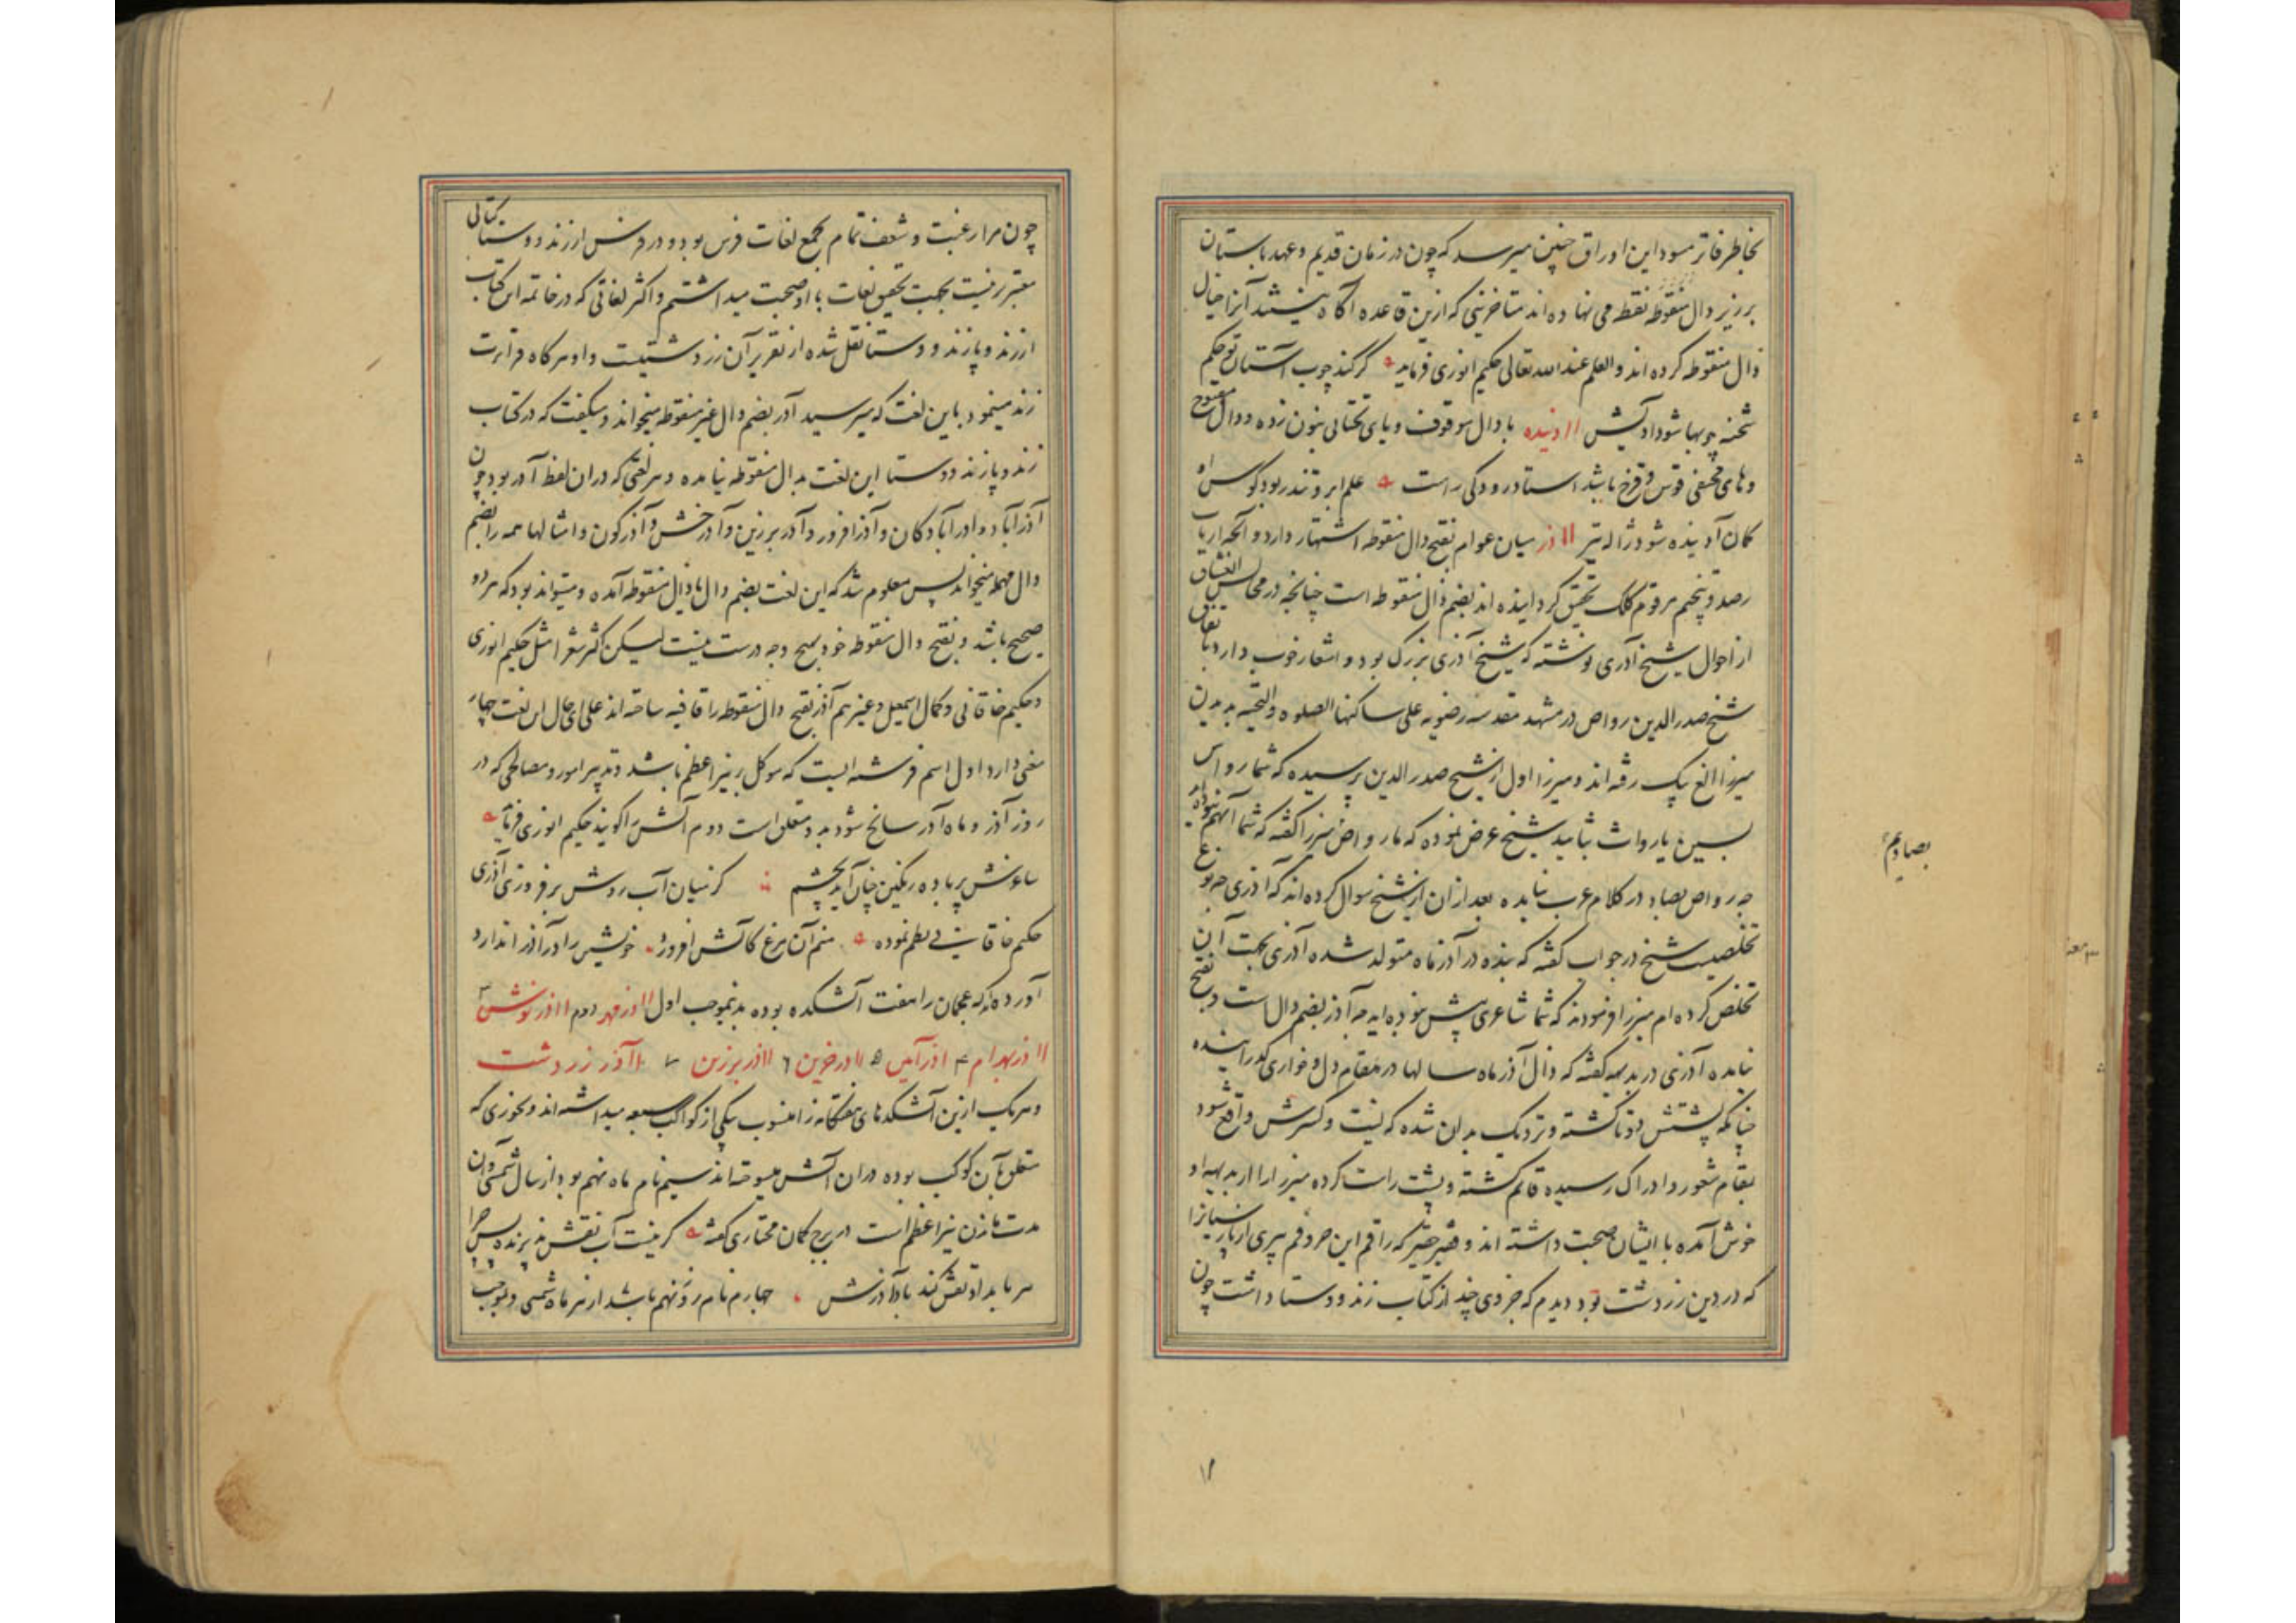 بخاطر فاتر مسود این اوراق چنین میرسد که چون در زمان قدیم و عهد باستان
بر زبر دال منقوطه نقطه می نهاده اند متاخرینی که ازین قاعده آگاه نیند آنرا خیال
ذال منقوطه کرده اند والعلم عند الله تعالی حکیم انوری فرماید گر کند چوب آستان تو حکم
شحنه چوبها شود آدیش اادنیده با دال موقوف و یای تحتانی بنون زده و دال مفتوح
وهای مختفی قوس و قزح باشد استاد رودکی راست علم ابر و تندر بود کوس او
کمان آدنیده شود ژاله تیر ااذر میان عوام بفتح دال منقوطه اشتهار دارد و آنچه ارباب
رصد و تنجیم مرقوم کلک تحقیق گردانیده اند بضم ذال منقوطه است چنانچه در مجالس العشاق
از احوال شیخ آذری نوشته که شیخ آذری بزرگ بود و اشعار خوب دارد باتفاق
شیخ صدرالدین رواص در مشهد مقدسه رضویه علی ساکنها الصلوه والتحیه بدیدن
میرزا الغ بیک رفته اند و میرزا اول از شیخ صدرالدین پرسیده که شما رواس
بسین یا رواث بثایید شیخ عرض نموده که ما رواص میرزا گفته که شما آنهم نبوده اید
چه رواص بصاد در کلام عرب نیامده بعد از آن از شیخ سوال کرده اند که آذری چه نوع
تخلصیست شیخ در جواب گفته که بنده در آذر ماه متولد شده آذری بجهت آن
تخلص کرده ام میرزا فرمودند که شما شاعری پیش نبوده اید چه آذر بضم دال است و بفتح
نیامده آذری در بدیهه گفته که ذال آذر ماه سالها در مقام ذل و خواری گذرانیده
چنانکه پشتش دوتا گشته و نزدیک بدان شده که نیت و کسرش واقع شود
بمقام شعور و ادراک رسیده قائم گشته و پشت راست کرده میرزا را از بدیهه او
خوش آمده با ایشان صحبت داشته اند و فقیر حقیر که راقم این حروفم پیری از پارسیانرا
که در دین زردشت بود دیدم که جزوی چند از کتاب زند و وستا داشت چون
بصاد هم
چون مرا رغبت و شعف تمام بجمع لغات فرس بود و در فرس از زند و وستا کتابی
معتبرتر نیست بجهت تحقیق لغات با او صحبت میداشتم و اکثر لغاتی که در خاتمه این کتاب
از زند و پازند و وستا نقل شده از تقریر آن زردشتیست و او هرگاه قراءت
زند مینمود باین لغت که میرسید آدر بضم دال غیر منقوطه میخواند و میگفت که در کتاب
زند و پازند و وستا این لغت بدال منقوطه نیامده و هر لغتی که در آن لفظ آدر بود چون
آذرآباد و آدرآبادگان و آذرافروز و آدربرزین و آدرخش و آذرگون و امثالها همه را بضم
دال مهمله میخواند پس معلوم شد که این لغت بضم دال یا ذال منقوطه آمده و میتواند بود که هر دو
صحیح باشد و بفتح دال منقوطه خود بهیچ وجه درست نیست لیکن اکثر شعرا مثل حکیم انوری
و حکیم خاقانی و کمال اسمعیل و غیرهم آذر بفتح دال منقوطه را قافیه ساخته اند علی ای حال این لغت چهار
معنی دارد اول اسم فرشته ایست که موکل بر نیر اعظم باشد و تدبیر امور و مصالحی که در
روز آذر و ماه آذر سانح شود بدو متعلق است دوم آتش را گویند حکیم انوری فرماید
ساغرش پر باده رنگین چنان آید بچشم کز میان آب روشن برفروزی آذری
حکیم خاقانی نظم نموده منم آن مرغ کآتش افروزد خویشتن را در آذر اندازد
آورده اند که عجمان را هفت آتشکده بوده بدینموجب اول ااذر مهر دوم ااذر نوش ۳
ااذر بهرام ۴ اذر آیین ۵ ااذر خوین ۶ ااذر برزین ۷ اآذر زردشت
و هر یک ازین آتشکدهای هفتگانه را منسوب بیکی از کواکب سبعه میداشته اند و بخوری که
متعلق بآن کوکب بوده در آن آتش میسوخته اند سیم نام ماه نهم بود از سال شمسی و آن
مدت ماندن نیر اعظم است در برج کمان مختاری گفته گر نیست آب نقش پذیرنده پس چرا
هر بامداد نقش کند باد آذرش چهارم نام روز نهم باشد از هر ماه شمسی و بموجب